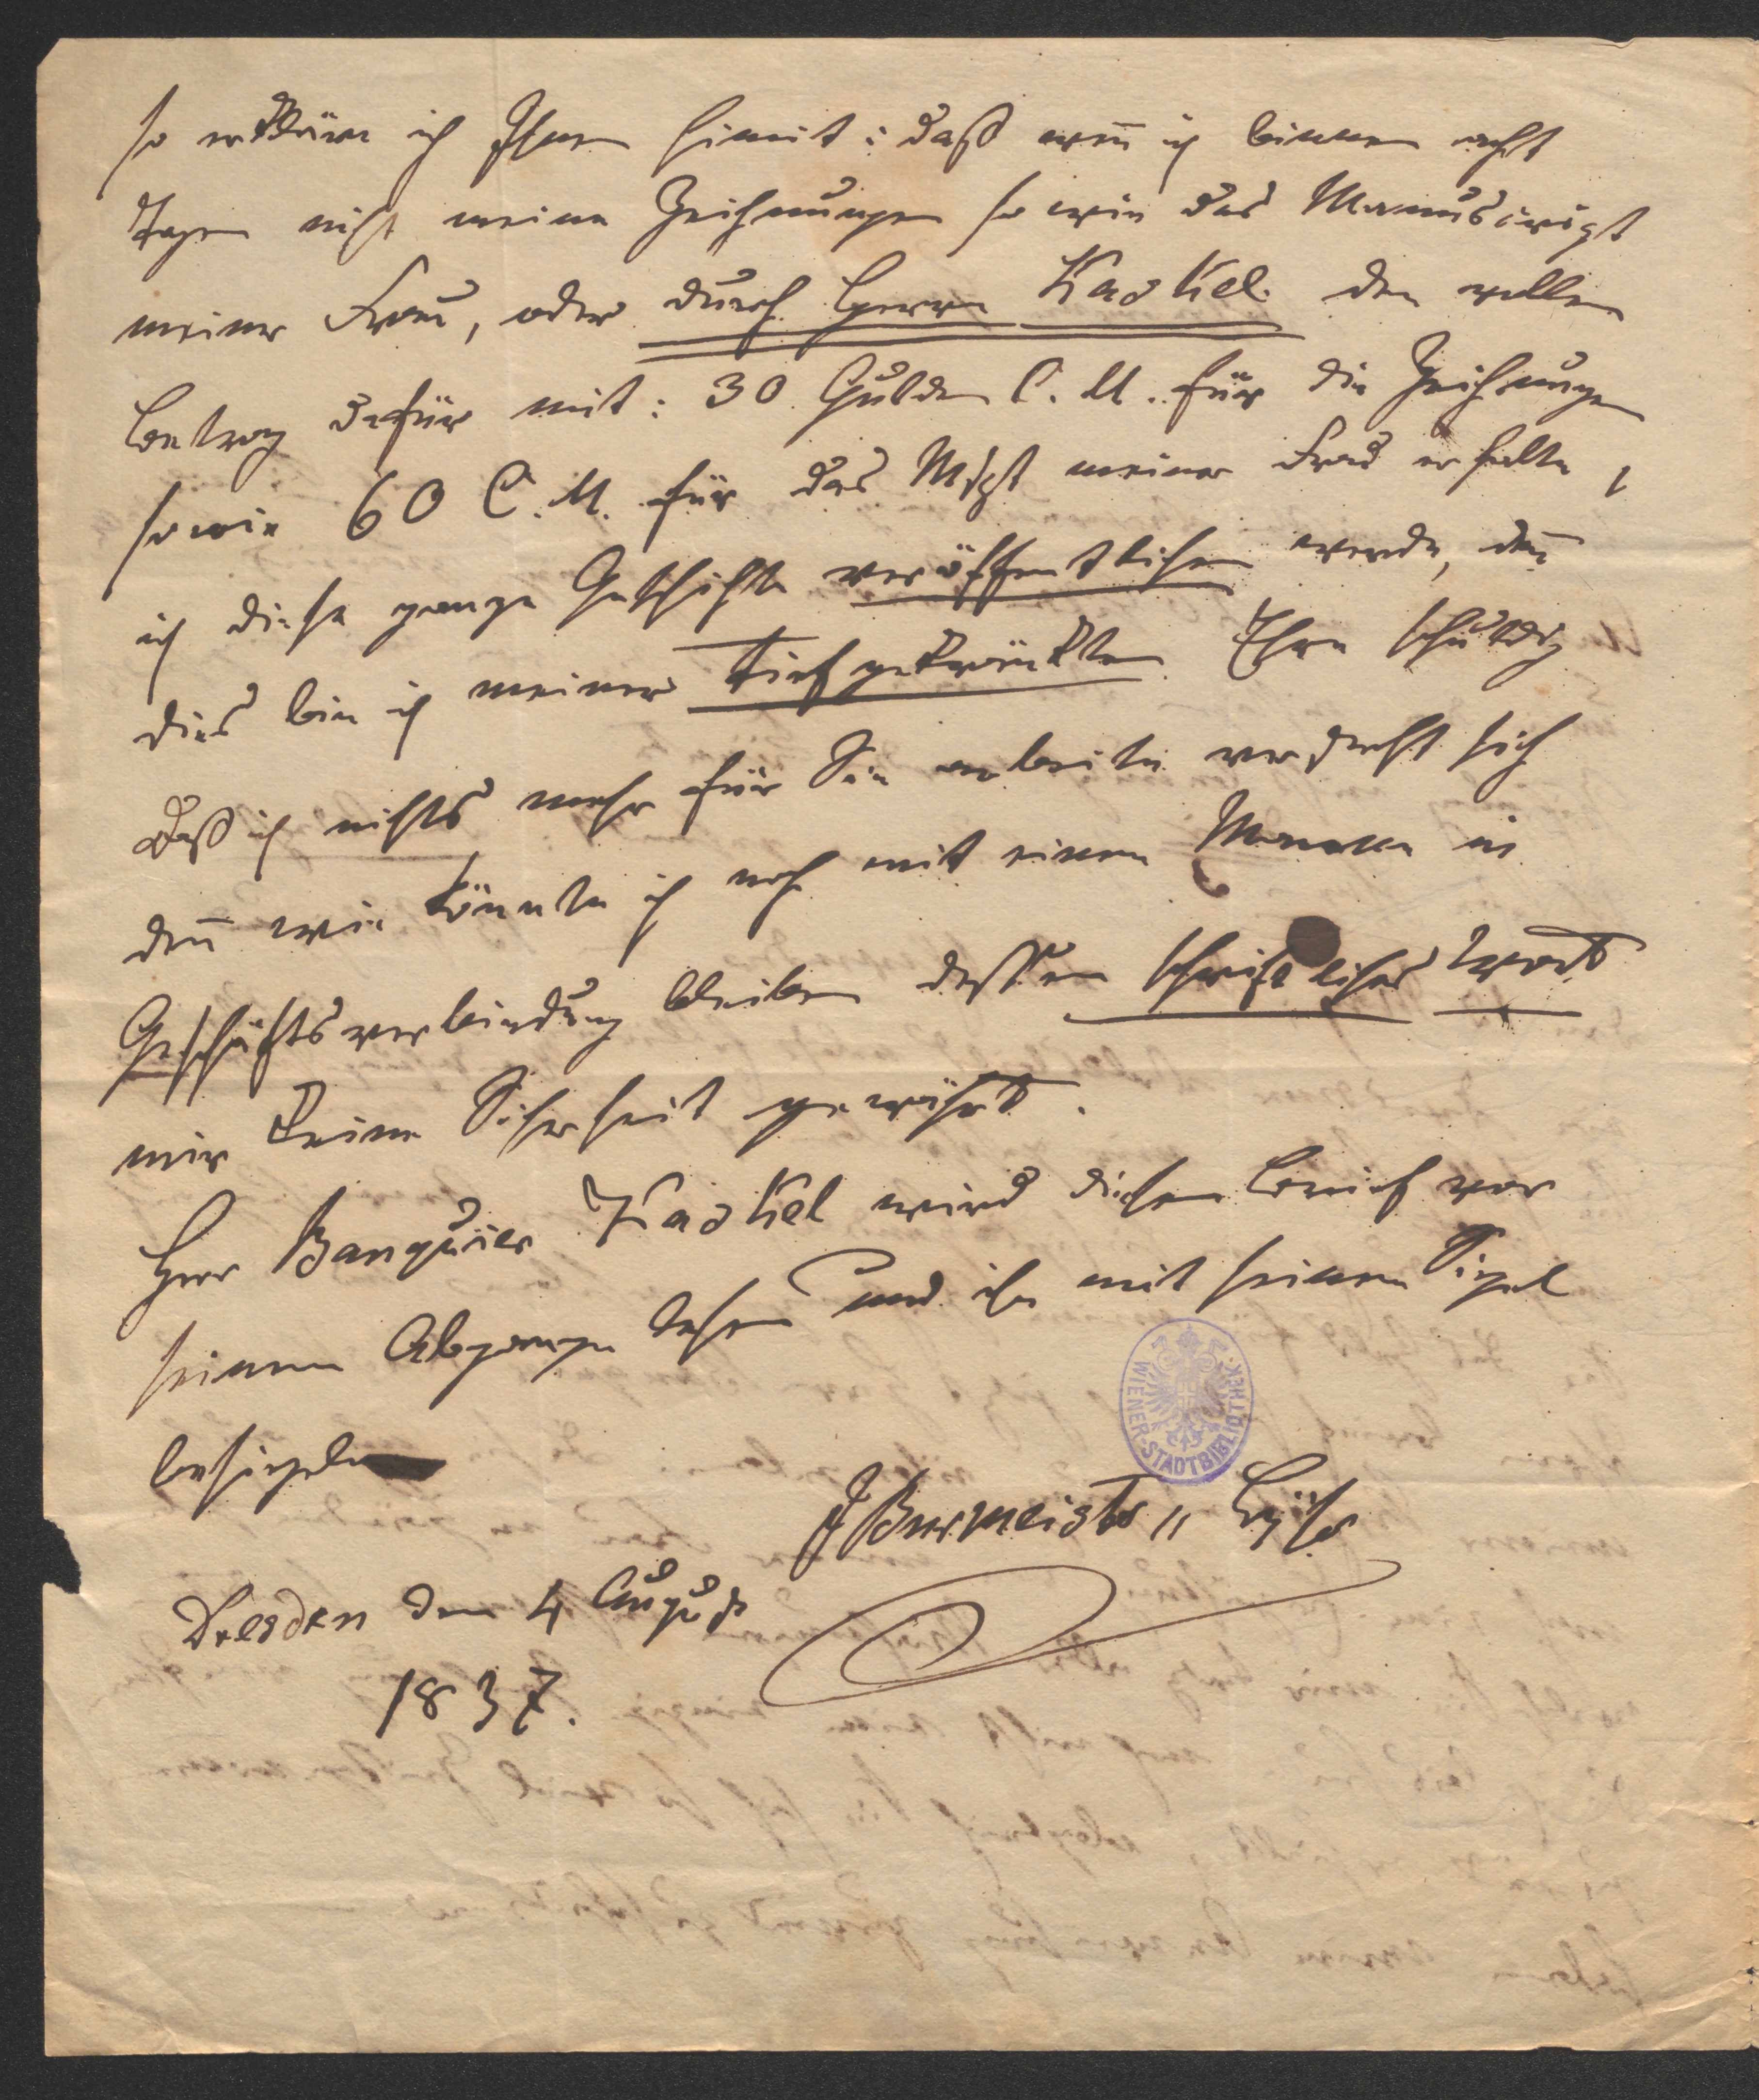 so erkläre ich Ihnen himit: daß weñ ich binnen acht
Tagen nicht meine Zeichnungen so wie das Manuscript
meiner Frau, oder durch Herrn Kaskel den vollen
Betrag dafür mit: 30 Gulden C. M. für die Zeichnungen
sowie 60 C. M. für das Mspt meiner Frau erhalte,
ich diese ganze Geschichte veröffentlichen werde, deñ
dies bin ich meiner tiefgekränkten Ehre schuldig
Daß ich nichts mehr für Sie arbeite versteht sich
deñ wie könnte ich noch mit einem Manne in
Geschäftsverbindung bleiben dessen schriftliches Wort
mir keine Sicherheit gewährt.
Herr Banquier Kaskel wird diesen Brief vor
seinem Abgange sehen und ihn mit seinem Sigel
besiegeln
WIENER-STADTBIBLIOTHEK.
JBurmeister „ Lyser
Dresden den 4 August
1837.